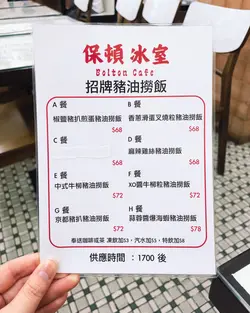 保頓冰室
Bolton Cafe
招牌豬油撈飯
A 餐
椒鹽豬扒煎蛋豬油撈飯
$68
B 餐
香蔥滑蛋叉燒粒豬油撈飯
$68
C 餐
D 餐
麻辣雞絲豬油撈飯
$68
E 餐
中式牛柳豬油撈飯
$72
F 餐
XO醬牛柳粒豬油撈飯
$72
G 餐
京都豬扒豬油撈飯
$72
H 餐
蒜蓉醬爆海蝦豬油撈飯
$78
奉送咖啡或茶 凍飲加$3、汽水加$5、特飲加$8
供應時間：1700 後